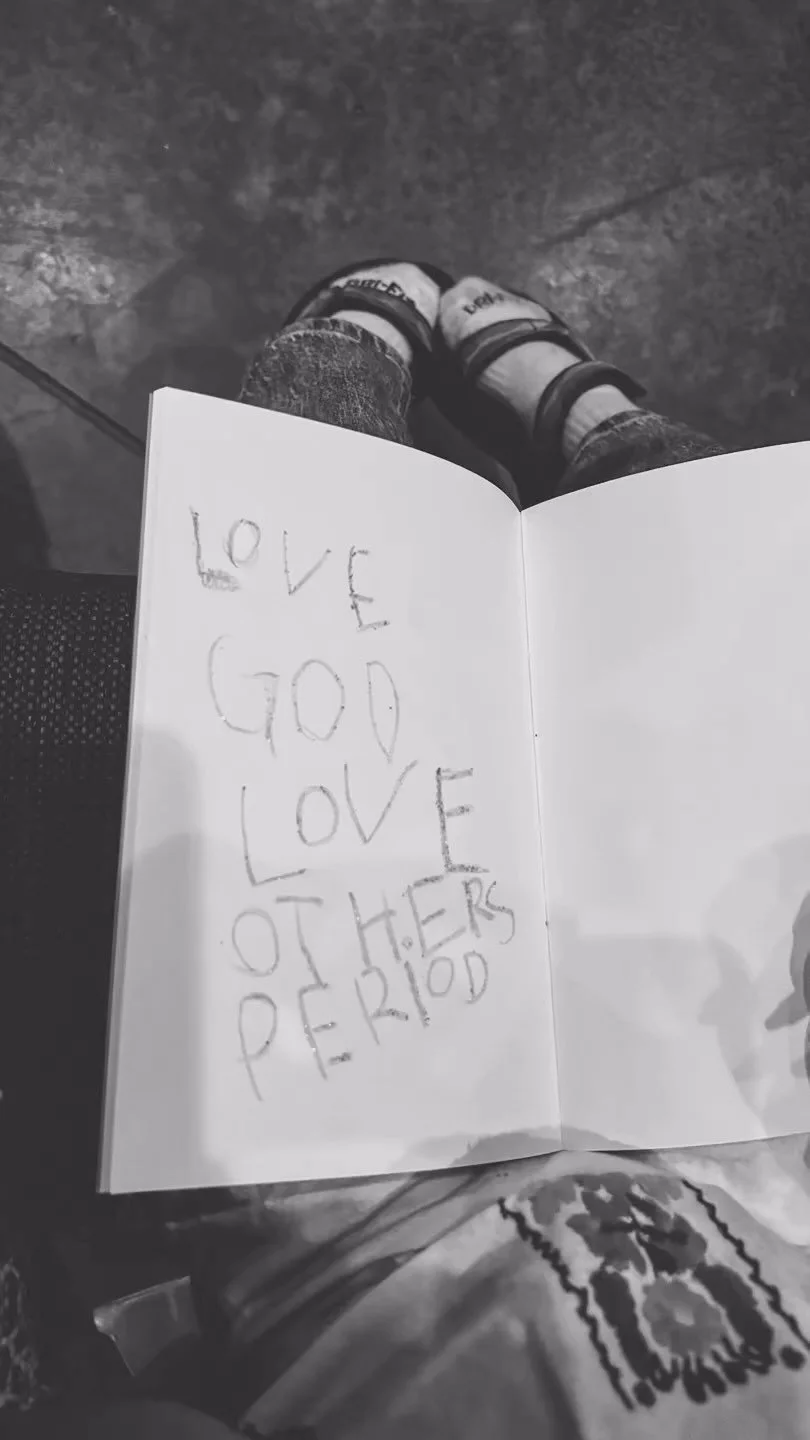 LOVE
GOD
LOVE
OTHERS
PERIOD